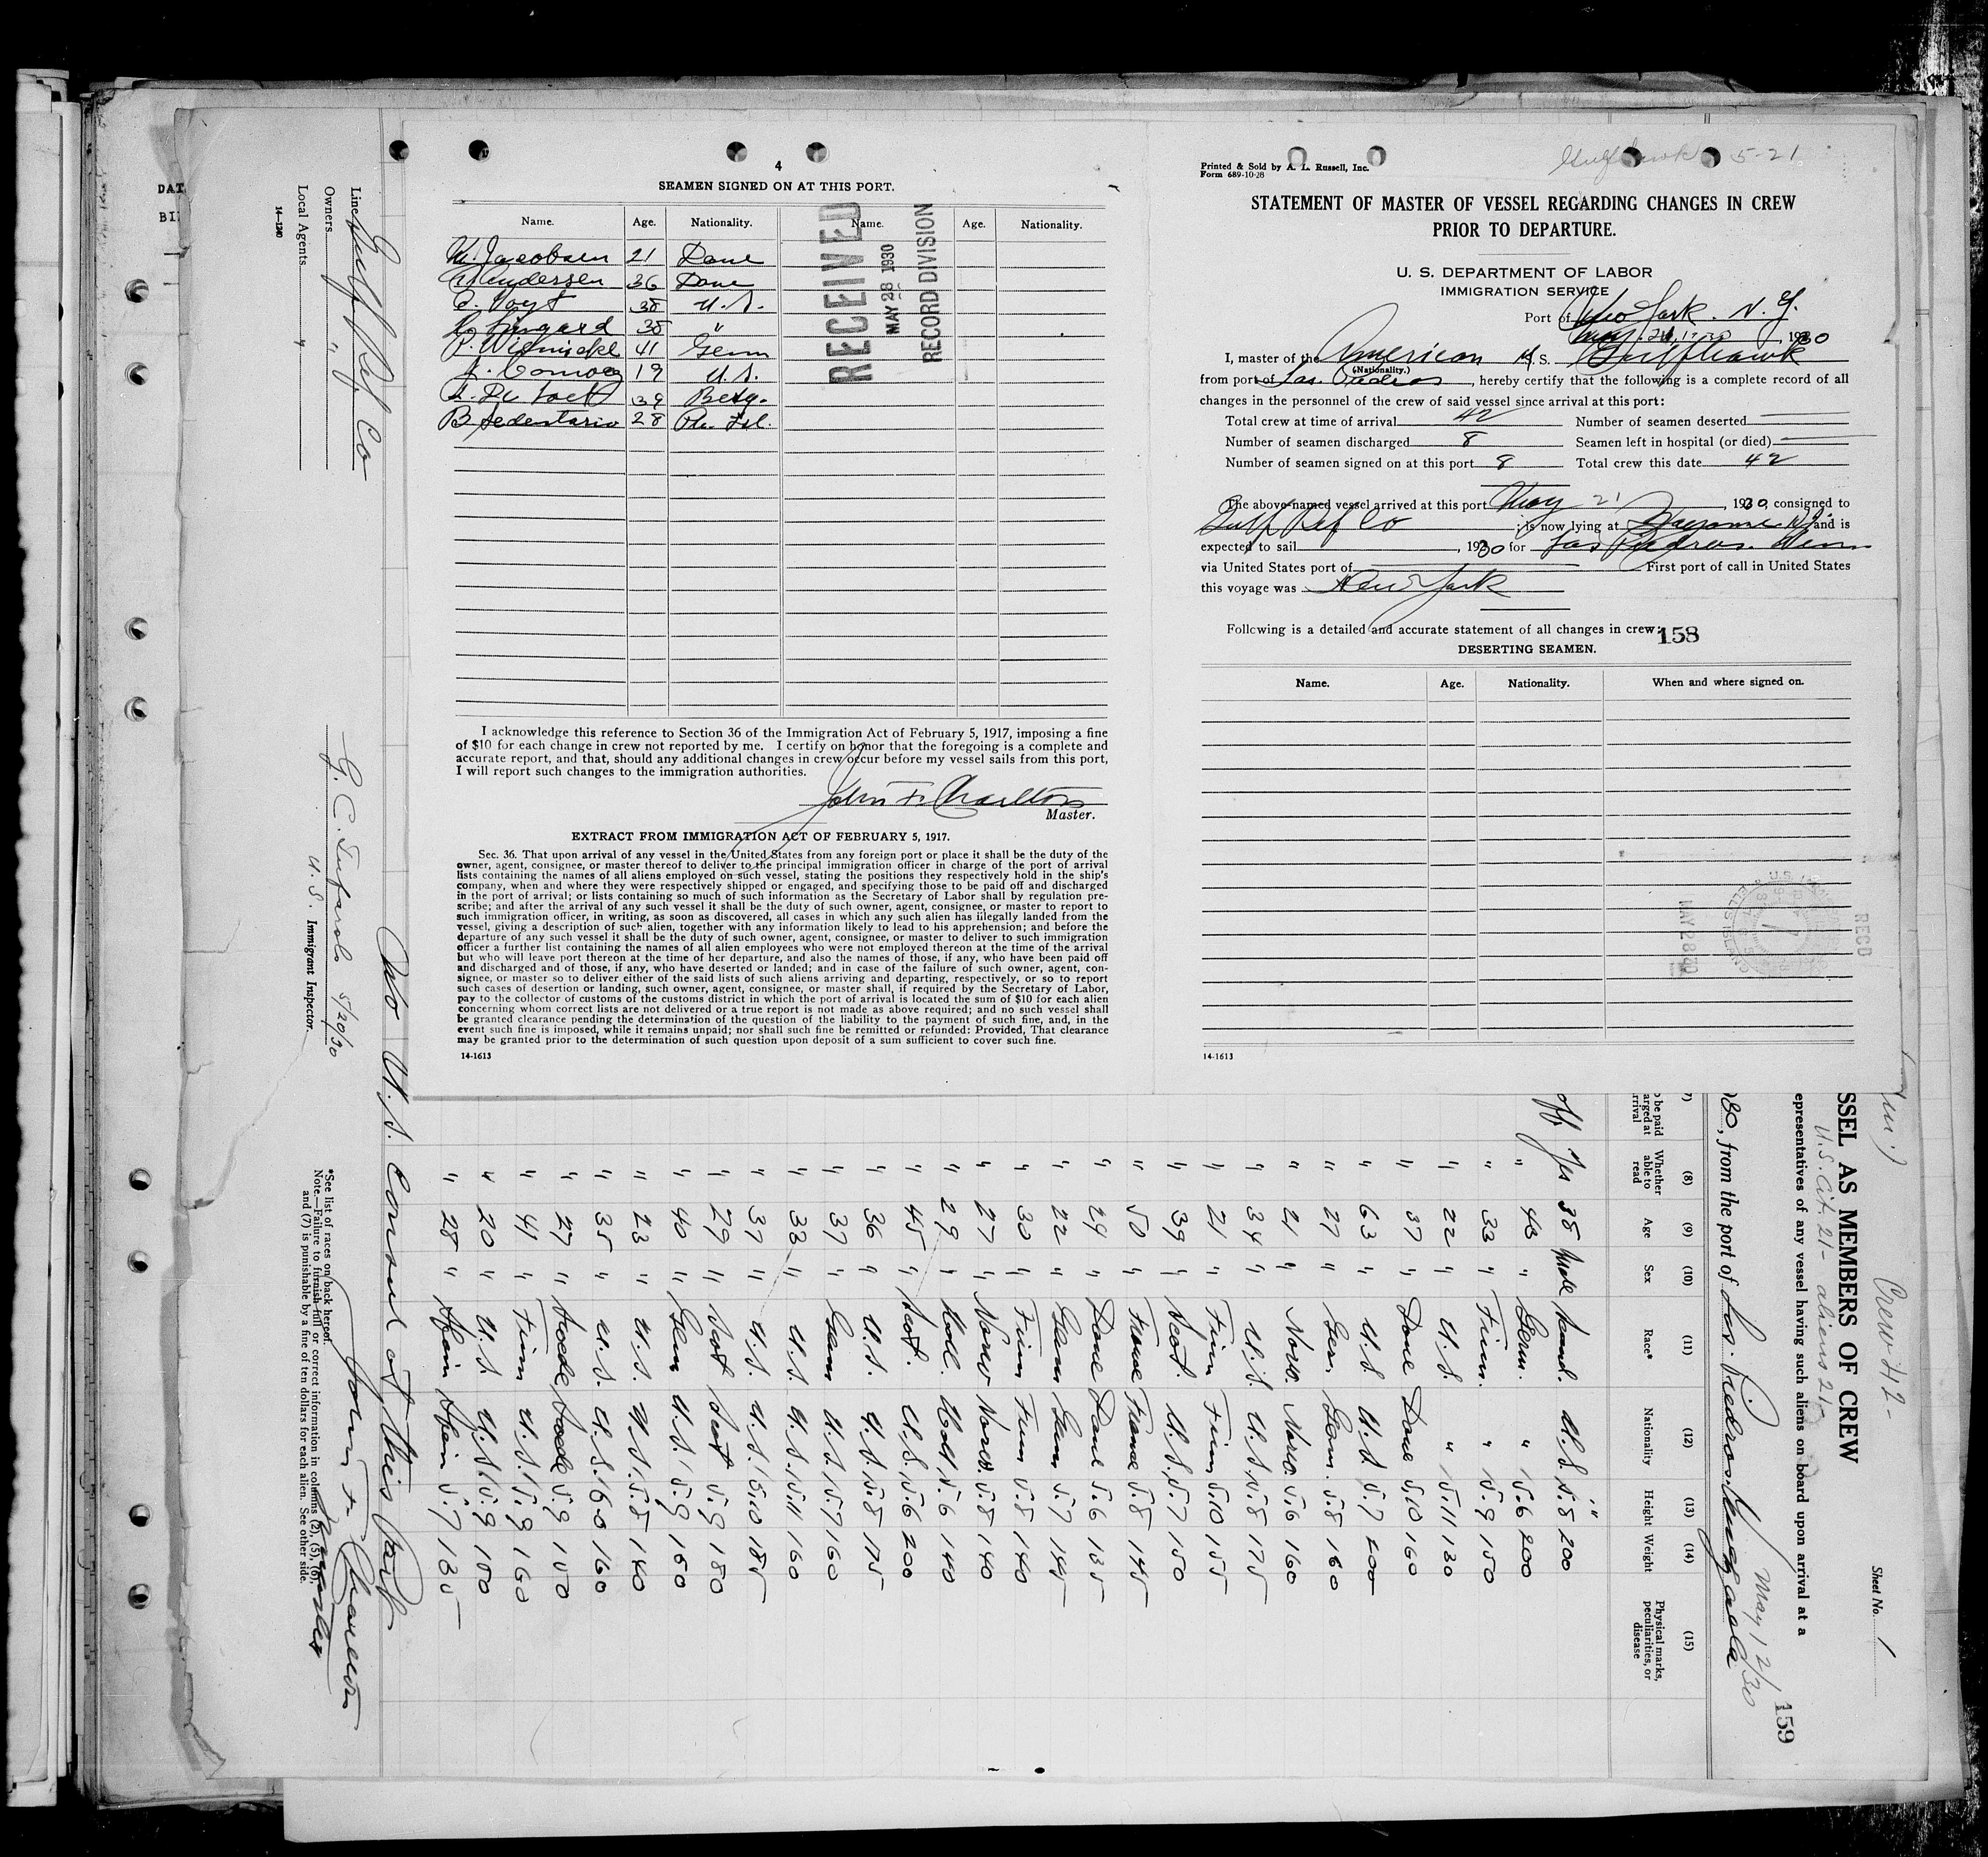 4
SEAMEN SIGNED ON AT THIS PORT.
Name. Age. Nationality. Name. Age. Nationality.
M. Jacobsen 21 Dane
Andersen 36 Dane
Voyt 38 U.S.
38 "
P. 41 Germ
J. 19 U.S.
39 Belg.
B. Sedentario 28 Ph. Isl.
RECEIVED
MAY 28 1930
RECORD DIVISION
I acknowledge this reference to Section 36 of the Immigration Act of February 5, 1917, imposing a fine
of $10 for each change in crew not reported by me. I certify on honor that the foregoing is a complete and
accurate report, and that, should any additional changes in crew occur before my vessel sails from this port,
I will report such changes to the immigration authorities.
John F. Charlton
Master.
EXTRACT FROM IMMIGRATION ACT OF FEBRUARY 5, 1917.
Sec. 36. That upon arrival of any vessel in the United States from any foreign port or place it shall be the duty of the
owner, agent, consignee, or master thereof to deliver to the principal immigration officer in charge of the port of arrival
lists containing the names of all aliens employed on such vessel, stating the positions they respectively hold in the ship's
company, when and where they were respectively shipped or engaged, and specifying those to be paid off and discharged
in the port of arrival; or lists containing so much of such information as the Secretary of Labor shall by regulation pre-
scribe; and after the arrival of any such vessel it shall be the duty of such owner, agent, consignee, or master to report to
such immigration officer, in writing, as soon as discovered, all cases in which any such alien has illegally landed from the
vessel, giving a description of such alien, together with any information likely to lead to his apprehension; and before the
departure of any such vessel it shall be the duty of such owner, agent, consignee, or master to deliver to such immigration
officer a further list containing the names of all alien employees who were not employed thereon at the time of the arrival
but who will leave port thereon at the time of her departure, and also the names of those, if any, who have been paid off
and discharged and of those, if any, who have deserted or landed; and in case of the failure of such owner, agent, con-
signee, or master so to deliver either of the said lists of such aliens arriving and departing, respectively, or so to report
such cases of desertion or landing, such owner, agent, consignee, or master shall, if required by the Secretary of Labor,
pay to the collector of customs of the customs district in which the port of arrival is located the sum of $10 for each alien
concerning whom correct lists are not delivered or a true report is not made as above required; and no such vessel shall
be granted clearance pending the determination of the question of the liability to the payment of such fine, and, in the
event such fine is imposed, while it remains unpaid; nor shall such fine be remitted or refunded: Provided, That clearance
may be granted prior to the determination of such question upon deposit of a sum sufficient to cover such fine.
14-1613
Printed & Sold by A. L. Russell, Inc.
Form 689-10-28
Gulfhawk 5-21
STATEMENT OF MASTER OF VESSEL REGARDING CHANGES IN CREW
PRIOR TO DEPARTURE.
U. S. DEPARTMENT OF LABOR
IMMIGRATION SERVICE
Port of New York. N.Y.
May 21, 1930, 1930
I, master of the American M.S. Gulfhawk
(Nationality.)
from port of Las Piedras, hereby certify that the following is a complete record of all
changes in the personnel of the crew of said vessel since arrival at this port:
Total crew at time of arrival 42 Number of seamen deserted
Number of seamen discharged 8 Seamen left in hospital (or died)
Number of seamen signed on at this port 8 Total crew this date 42
The above-named vessel arrived at this port May 21, 1930, consigned to
Gulf Ref Co; is now lying at Bayonne NJ and is
expected to sail , 1930 for Las Piedras. Venz
via United States port of First port of call in United States
this voyage was New York
Following is a detailed and accurate statement of all changes in crew: 158
DESERTING SEAMEN.
Name. Age. Nationality. When and where signed on.
MAY 28 30
RECD
14-1613
Line Gulf Ref Co
Owners "
Local Agents "
14-1240
G. C. Tufarolo 5/20/30
U. S. Immigrant Inspector.
No U.S. Consul at this Port
*See list of races on back hereof.
Note.—Failure to furnish full or correct information in columns (2), (5), (6),
and (7) is punishable by a fine of ten dollars for each alien. See other side.
John F. Charlton
Master
Sheet No. 1
159
Crew 42 -
SSEL AS MEMBERS OF CREW
U.S. Cit. 21 - aliens 21 -
epresentatives of any vessel having such aliens on board upon arrival at a
May 12/30
30, from the port of Las. Piedras. Venezuela
(8) (9) (10) (11) (12) (13) (14) (15)
Whether able to read Age Sex Race* Nationality Height Weight Physical marks, peculiarities, or disease
off Yes 38 Male Scand. U.S. 5.8 200
" 43 " Germ. " 5.6 200
" 33 " Finn. " 5.9 150
" 22 " U.S. " 5.11 130
" 37 " Dane Dane 5.10 160
" 63 " U.S. U.S. 5.7 200
" 27 " Ger. Germ. 5.8 160
" 21 " Norw. Norw. 5.6 160
" 34 " U.S. U.S. 5.8 175
" 21 " Finn Finn 5.10 155
" 39 " Scot. U.S. 5.7 150
" 50 " France France 5.8 145
" 24 " Dane Dane 5.6 135
" 22 " Germ Germ 5.7 145
" 30 " Finn Finn 5.8 140
" 27 " Norw Norw. 5.8 140
" 29 " Holl. Holl. 5.6 140
" 45 " Scot. U.S. 5.6 200
" 36 " U.S. U.S. 5.8 175
" 37 " Germ U.S. 5.7 160
" 33 " U.S. U.S. 5.11 160
" 37 " U.S. U.S. 5.10 185
" 29 " Scot Scot 5.9 180
" 40 " Germ U.S. 5.9 150
" 23 " U.S. U.S. 5.8 140
" 35 " U.S. U.S. 6.0 160
" 27 " Swede Swede 5.9 150
" 41 " Finn U.S. 5.9 160
" 20 " U.S. U.S. 5.9 150
" 28 " Spain Spain 5.7 135